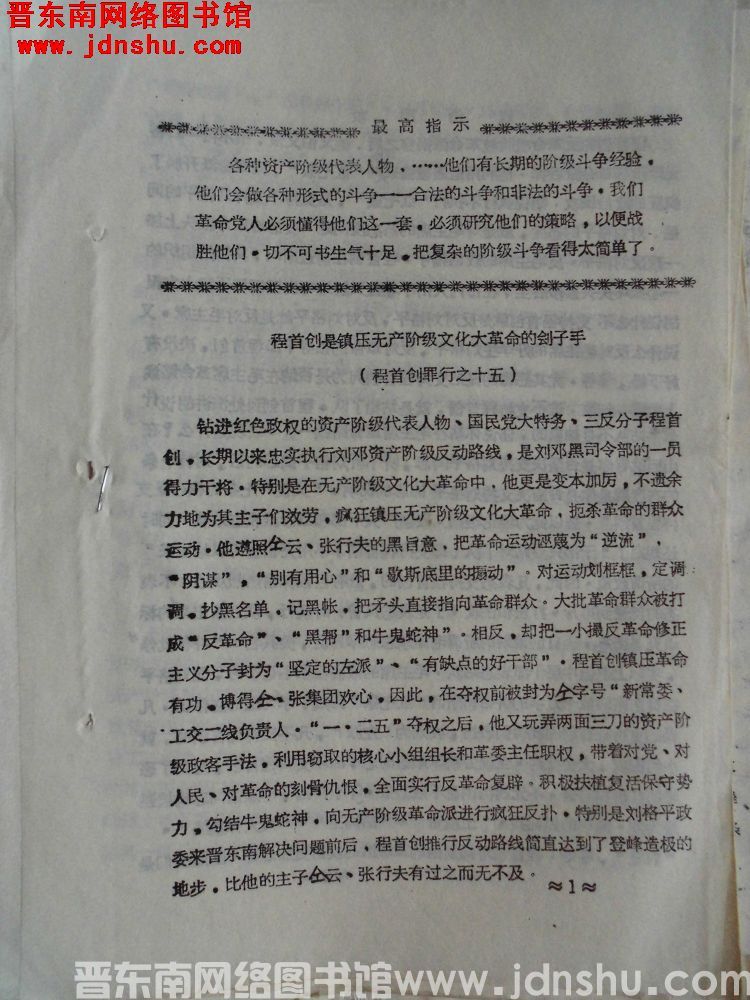 晋东南网络图书馆
www.jdnshu.com
最高指示
各种资产阶级代表人物，……他们有长期的阶级斗争经验。
他们会做各种形式的斗争——合法的斗争和非法的斗争。我们
革命党人必须懂得他们这一套。必须研究他们的策略，以便战
胜他们。切不可书生气十足。把复杂的阶级斗争看得太简单了。
程首创是镇压无产阶级文化大革命的刽子手
（程首创罪行之十五）
钻进红色政权的资产阶级代表人物、国民党大特务、三反分子程首
创。长期以来忠实执行刘邓资产阶级反动路线，是刘邓黑司令部的一员
得力干将。特别是在无产阶级文化大革命中，他更是变本加厉，不遗余
力地为其主子们效劳，疯狂镇压无产阶级文化大革命，扼杀革命的群众
运动。他遵照仝云、张行夫的黑旨意，把革命运动诬蔑为“逆流”，
“阴谋”，“别有用心”和“歇斯底里的摄动”。对运动划框框，定调
调。抄黑名单，记黑帐，把矛头直接指向革命群众。大批革命群众被打
成“反革命”、“黑帮”和牛鬼蛇神”。相反，却把一小撮反革命修正
主义分子封为“坚定的左派”、“有缺点的好干部”。程首创镇压革命
有功。博得仝、张集团欢心，因此，在夺权前被封为仝字号“新常委、
工交二线负责人。“一·二五”夺权之后，他又玩弄两面三刀的资产阶
级政客手法，利用窃取的核心小组组长和革委主任职权，带着对党、对
人民、对革命的刻骨仇恨，全面实行反革命复辟。积极扶植复活保守势
力。勾结牛鬼蛇神，向无产阶级革命派进行疯狂反扑。特别是刘格平政
委来晋东南解决问题前后，程首创推行反动路线简直达到了登峰造极的
地步。比他的主子仝云、张行夫有过之而无不及。
≈1≈
晋东南网络图书馆www.jdnshu.com